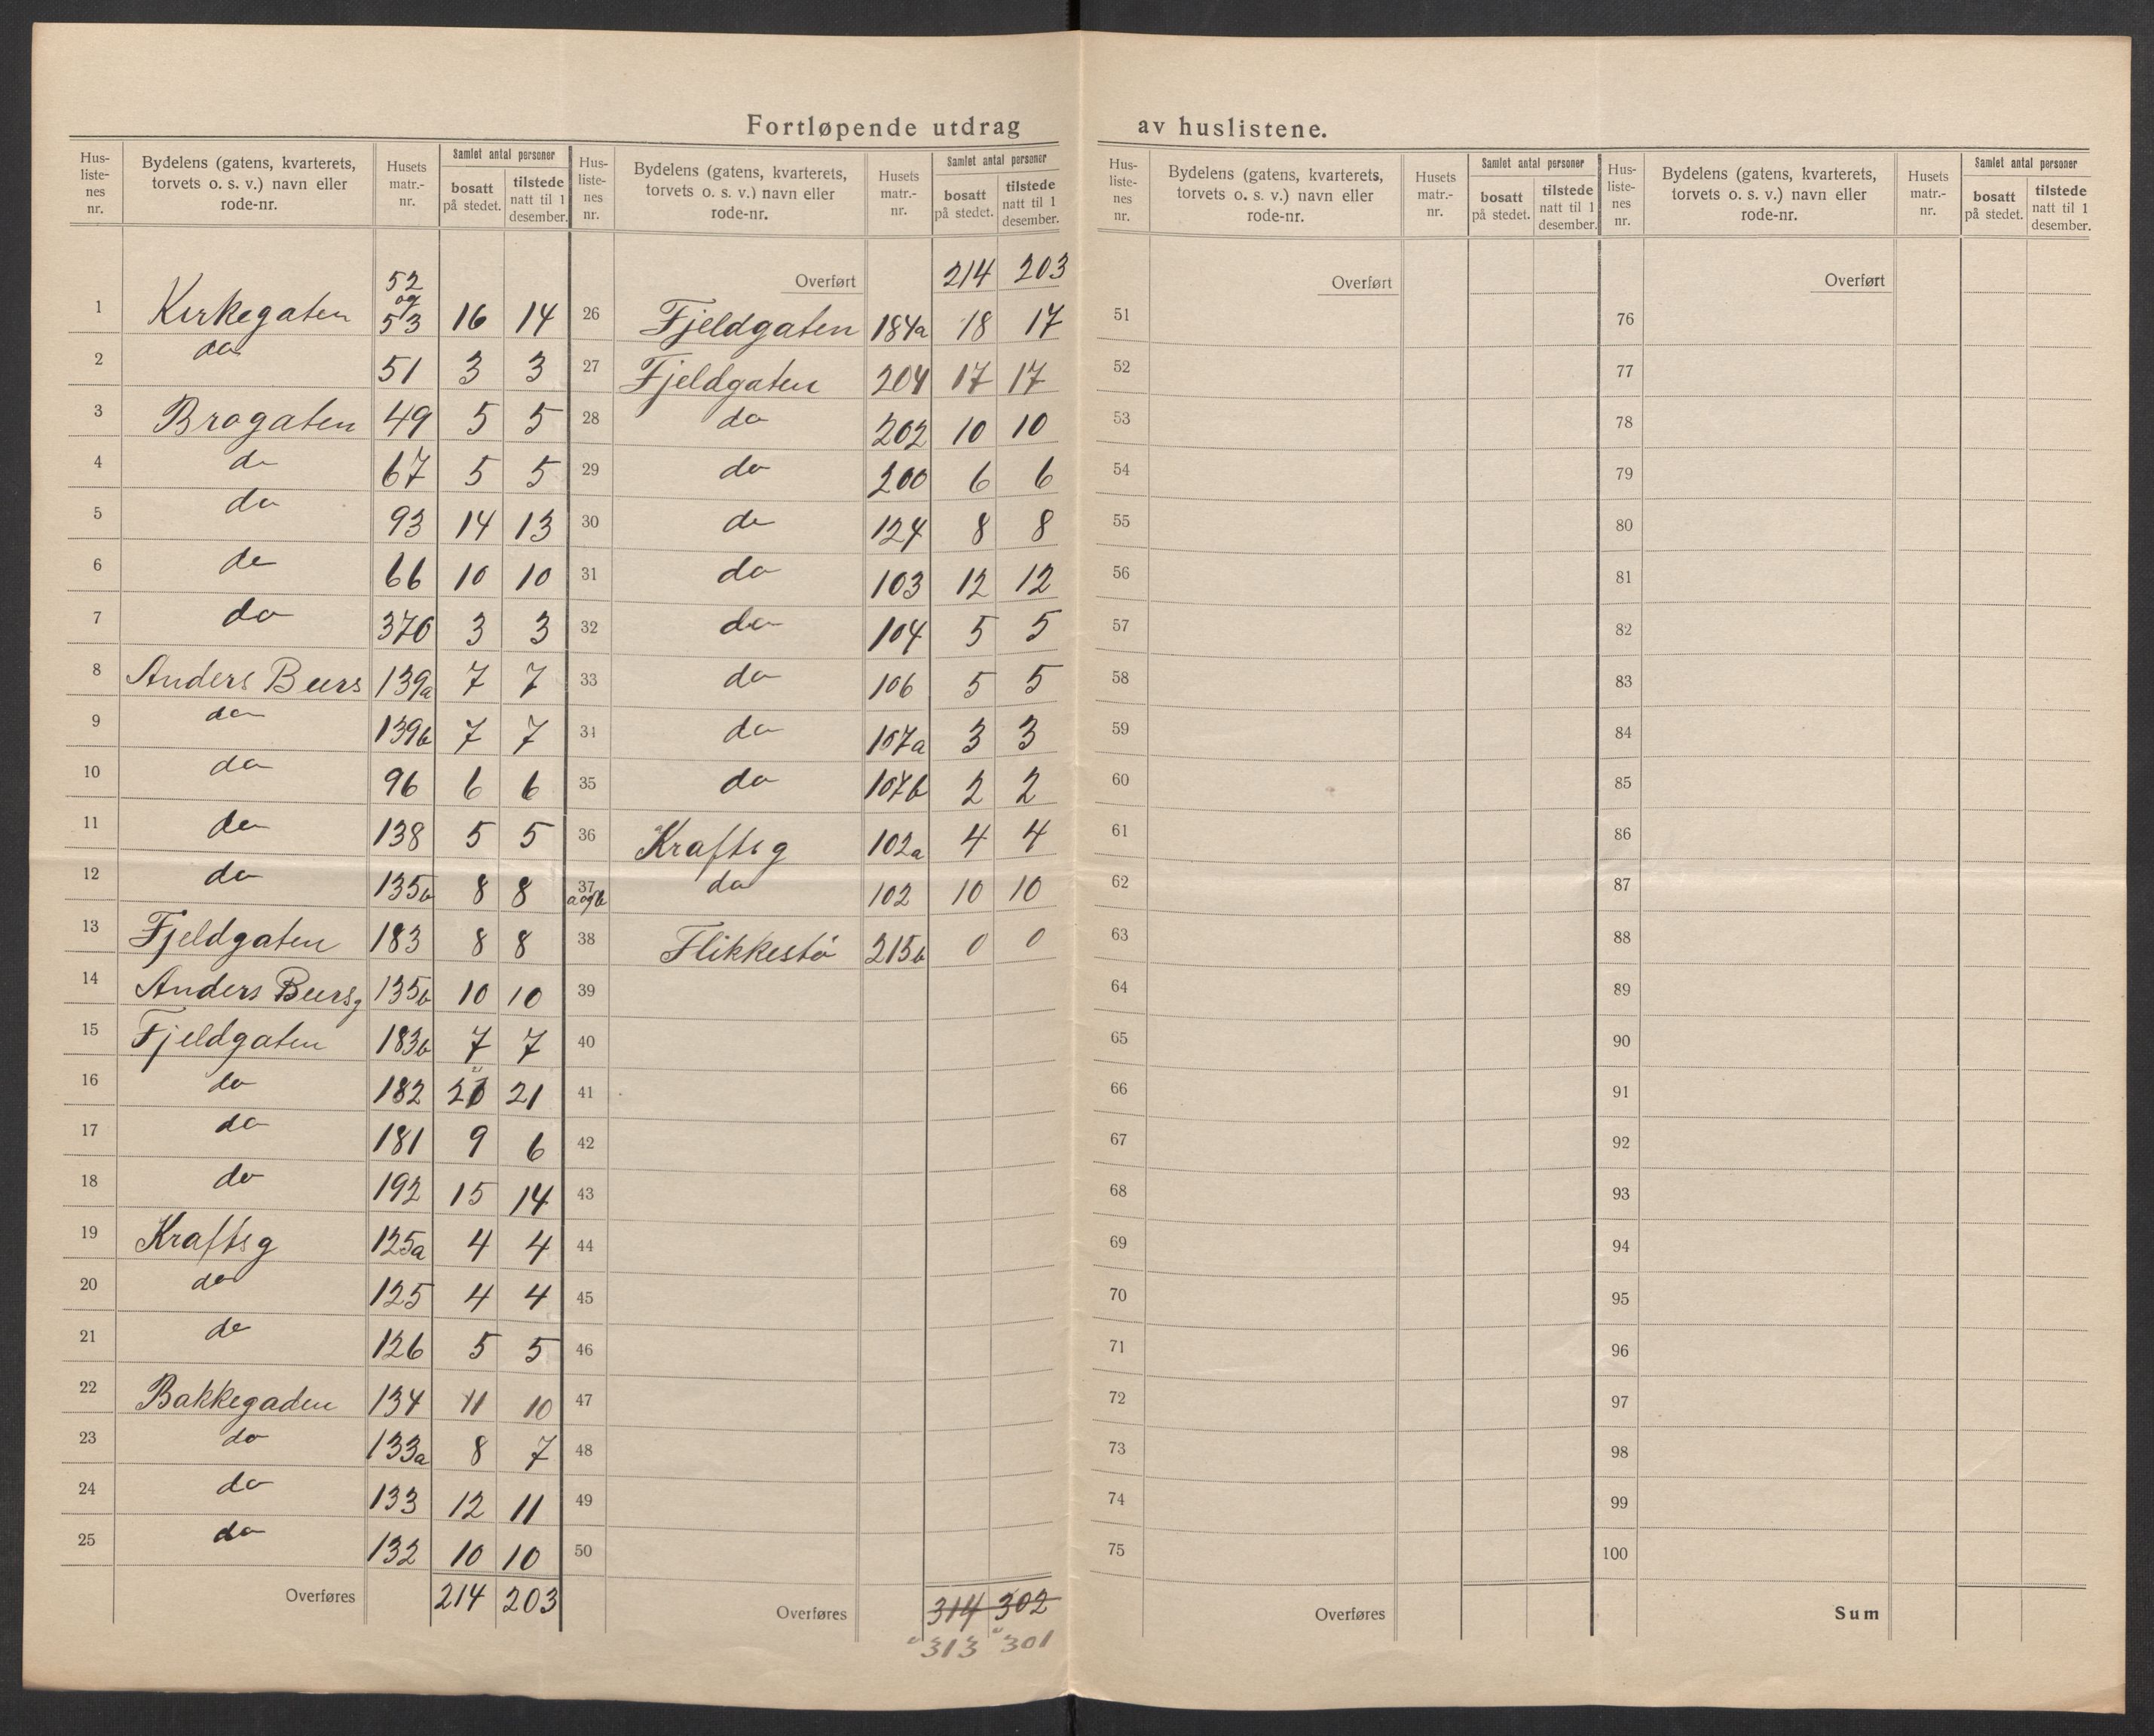 Fortløpende utdrag av huslistene.
Hus-listenes nr. | Bydelens (gatens, kvarterets, torvets o. s. v.) navn eller rode-nr. | Husets matr.-nr. | Samlet antal personer bosatt på stedet. | tilstede natt til 1 desember.
1 Kirkegaten 52 og 53 16 14
2 do 51 3 3
3 Brogaten 49 5 5
4 do 67 5 5
5 do 93 14 13
6 do 66 10 10
7 do 370 3 3
8 Anders Beers 139a 7 7
9 do 139b 7 7
10 do 96 6 6
11 do 138 5 5
12 do 135b 8 8
13 Fjeldgaten 183 8 8
14 Anders Beersg 135b 10 10
15 Fjeldgaten 183b 7 7
16 do 182 21
17 do 181 9 6
18 do 192 15 14
19 Kraftsg 125a 4 4
20 do 125 4 4
21 do 126 5 5
22 Bakkegaden 134 11 10
23 do 133a 8 7
24 do 133 12 11
25 do 132 10 10
Overføres 214 203
Hus-listenes nr. | Bydelens (gatens, kvarterets, torvets o. s. v.) navn eller rode-nr. | Husets matr.-nr. | Samlet antal personer bosatt på stedet. | tilstede natt til 1 desember.
Overført 214 203
26 Fjeldgaten 184a 18 17
27 Fjeldgaten 204 17 17
28 do 202 10 10
29 do 200 6 6
30 do 124 8 8
31 do 103 12 12
32 do 104 5 5
33 do 106 5 5
34 do 107a 3 3
35 do 107b 2 2
36 Kraftsg 102a 4 4
37 a og b do 102 10 10
38 Flikkestø 215b 0 0
39
40
41
42
43
44
45
46
47
48
49
50
Overføres 314 302
313 301
Hus-listenes nr. | Bydelens (gatens, kvarterets, torvets o. s. v.) navn eller rode-nr. | Husets matr.-nr. | Samlet antal personer bosatt på stedet. | tilstede natt til 1 desember.
Overført
51
52
53
54
55
56
57
58
59
60
61
62
63
64
65
66
67
68
69
70
71
72
73
74
75
Overføres
Hus-listenes nr. | Bydelens (gatens, kvarterets, torvets o. s. v.) navn eller rode-nr. | Husets matr.-nr. | Samlet antal personer bosatt på stedet. | tilstede natt til 1 desember.
Overført
76
77
78
79
80
81
82
83
84
85
86
87
88
89
90
91
92
93
94
95
96
97
98
99
100
Sum